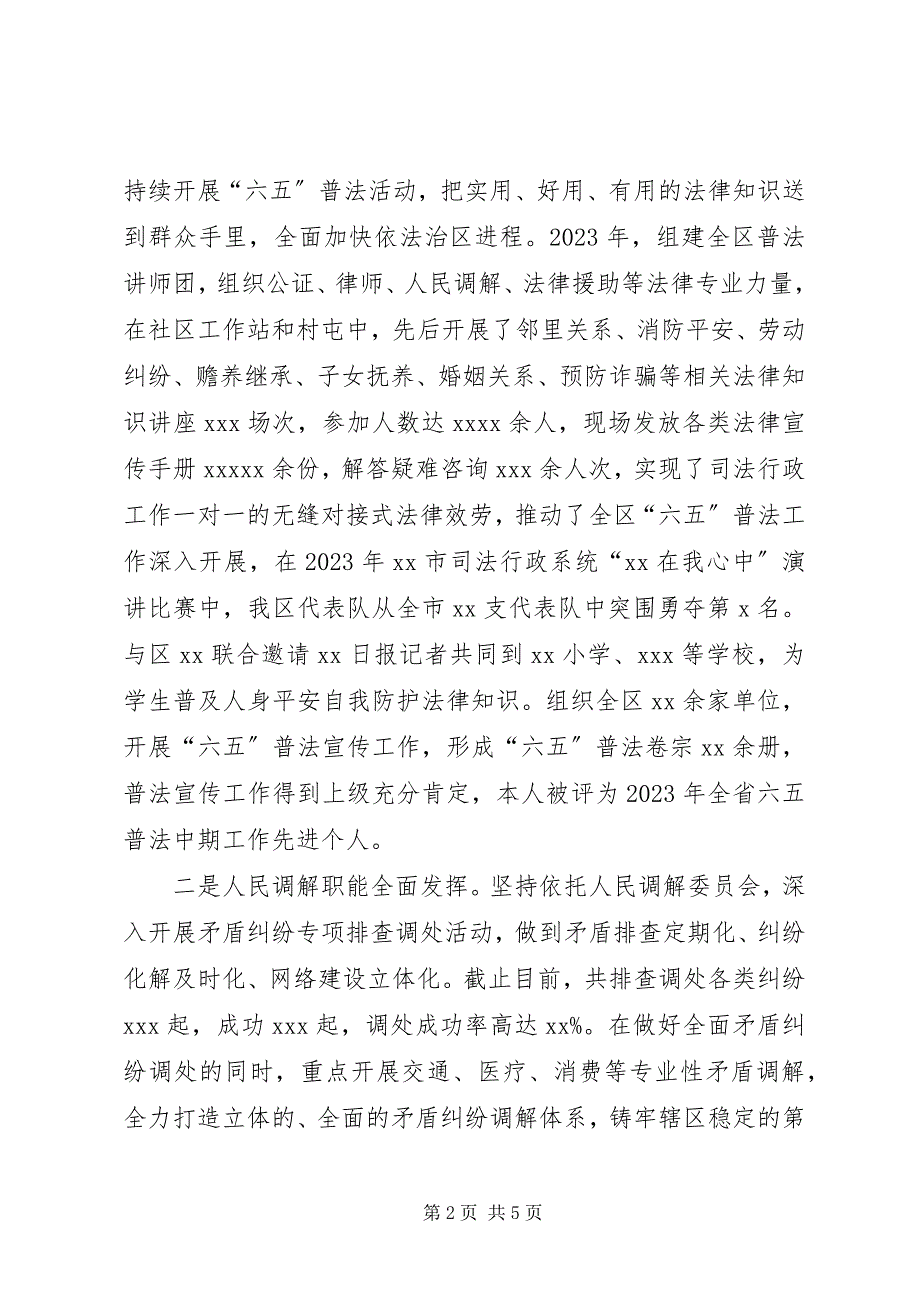 持续开展“六五〞普法活动，把实用、好用、有用的法律知识送
到群众手里，全面加快依法治区进程。2023 年，组建全区普法
讲师团，组织公证、律师、人民调解、法律援助等法律专业力量，
在社区工作站和村屯中，先后开展了邻里关系、消防平安、劳动
纠纷、赡养继承、子女抚养、婚姻关系、预防诈骗等相关法律知
识讲座 xxx 场次，参加人数达 xxxx 余人，现场发放各类法律宣
传手册 xxxxx 余份，解答疑难咨询 xxx 余人次，实现了司法行政
工作一对一的无缝对接式法律效劳，推动了全区“六五〞普法工
作深入开展，在 2023 年 xx 市司法行政系统“xx 在我心中〞演
讲比赛中，我区代表队从全市 xx 支代表队中突围勇夺第 x 名。
与区 xx 联合邀请 xx 日报记者共同到 xx 小学、xxx 等学校，为
学生普及人身平安自我防护法律知识。组织全区 xx 余家单位，
开展“六五〞普法宣传工作，形成“六五〞普法卷宗 xx 余册，
普法宣传工作得到上级充分肯定，本人被评为 2023 年全省六五
普法中期工作先进个人。
二是人民调解职能全面发挥。坚持依托人民调解委员会，深
入开展矛盾纠纷专项排查调处活动，做到矛盾排查定期化、纠纷
化解及时化、网络建设立体化。截止目前，共排查调处各类纠纷
xxx 起，成功 xxx 起，调处成功率高达 xx%。在做好全面矛盾纠
纷调处的同时，重点开展交通、医疗、消费等专业性矛盾调解，
全力打造立体的、全面的矛盾纠纷调解体系，铸牢辖区稳定的第
第 2 页 共 5 页